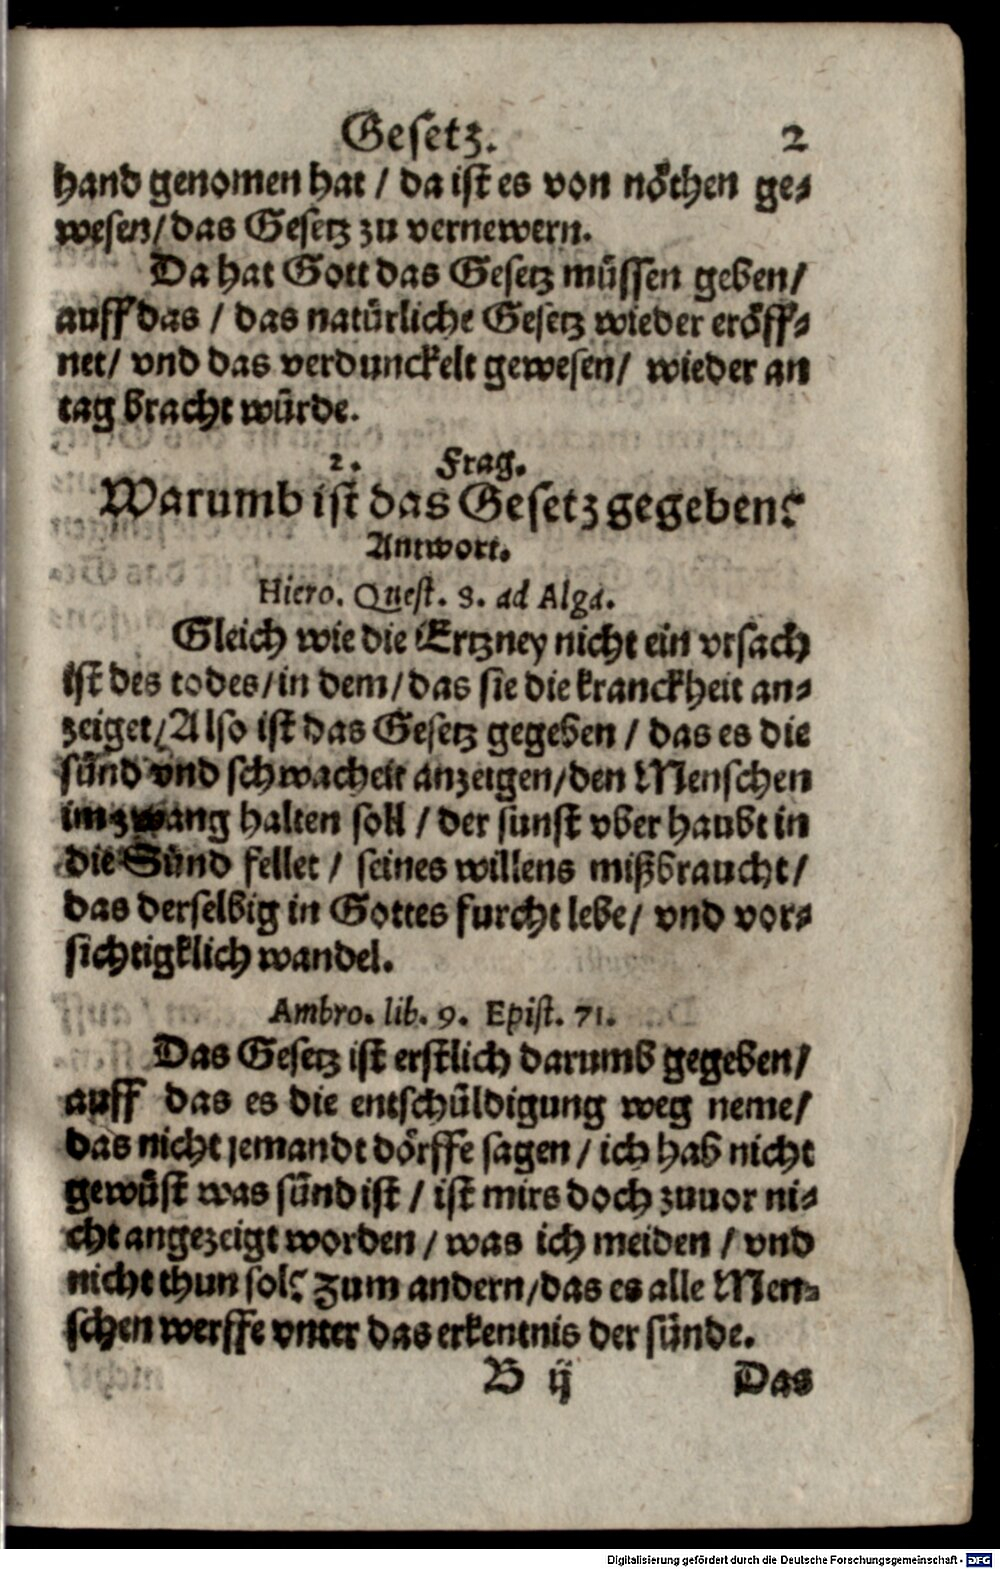 Gesetz. 2
hand genomen hat / da ist es von nöthen ge-
wesen / das Gesetz zu vernewern.
Da hat Gott das Gesetz müssen geben /
auff das / das natürliche Gesetz wieder eröff-
net / vnd das verdunckelt gewesen / wieder an
tag bracht würde.
2. Frag.
Warumb ist das Gesetz gegeben?
Antwort.
Hiero. Quest. 8. ad Alga.
Gleich wie die Ertzney nicht ein vrsach
ist des todes / in dem / das sie die kranckheit an-
zeiget / Also ist das Gesetz gegeben / das es die
sünd vnd schwacheit anzeigen / den Menschen
im zwang halten soll / der sunst vber haubt in
die Sünd fellet / seines willens mißbraucht /
das derselbig in Gottes furcht lebe / vnd vor-
sichtigklich wandel.
Ambro. lib. 9. Epist. 71.
Das Gesetz ist erstlich darumb gegeben /
auff das es die entschüldigung weg neme /
das nicht jemandt dörffe sagen / ich hab nicht
gewüst was sünd ist / ist mirs doch zuuor ni-
cht angezeigt worden / was ich meiden / vnd
nicht thun sol? Zum andern / das es alle Men-
schen werffe vnter das erkentnis der sünde.
B ij Das
Digitalisierung gefördert durch die Deutsche Forschungsgemeinschaft - DFG